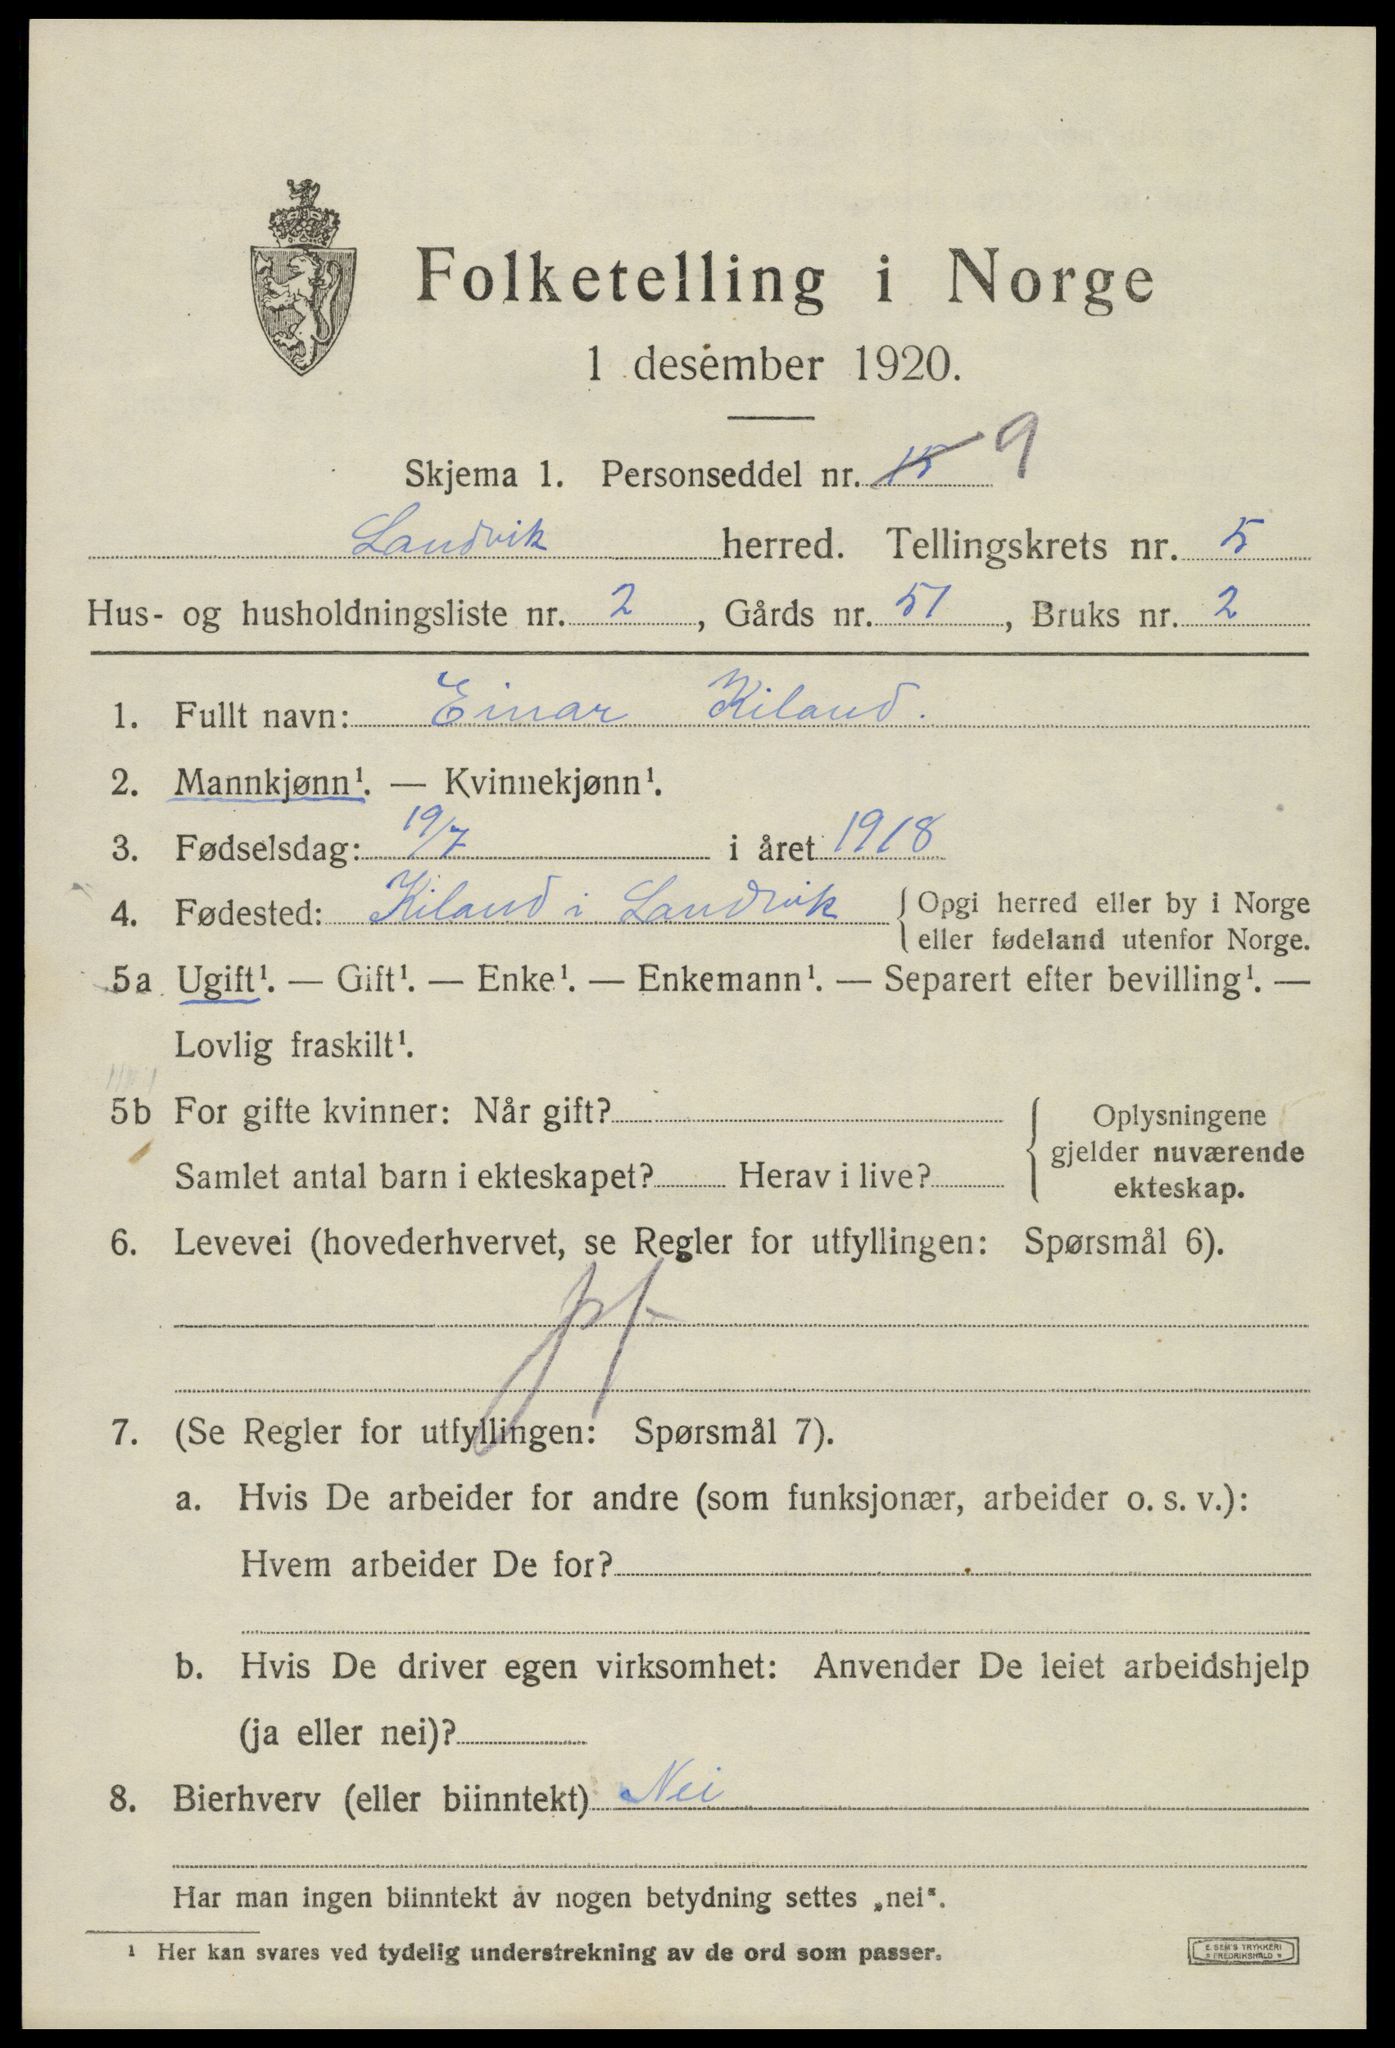 Folketelling i Norge
1 desember 1920.
Skjema 1. Personseddel nr. 15 9
Landvik herred. Tellingskrets nr. 5
Hus- og husholdningsliste nr. 2, Gårds nr. 51, Bruks nr. 2
1. Fullt navn: Einar Kiland.
2. Mannkjønn¹. — Kvinnekjønn¹.
3. Fødselsdag: 19/7 i året 1918
4. Fødested: Kiland i Landvik { Opgi herred eller by i Norge
eller fødeland utenfor Norge.
5a Ugift¹. — Gift¹. — Enke¹. — Enkemann¹. — Separert efter bevilling¹. —
Lovlig fraskilt¹.
5b For gifte kvinner: Når gift? { Oplysningene
gjelder nuværende
Samlet antal barn i ekteskapet? Herav i live? ekteskap.
6. Levevei (hovederhvervet, se Regler for utfyllingen: Spørsmål 6).
7. (Se Regler for utfyllingen: Spørsmål 7).
a. Hvis De arbeider for andre (som funksjonær, arbeider o. s. v.):
Hvem arbeider De for?
b. Hvis De driver egen virksomhet: Anvender De leiet arbeidshjelp
(ja eller nei)?
8. Bierhverv (eller biinntekt) Nei
Har man ingen biinntekt av nogen betydning settes „nei".
¹ Her kan svares ved tydelig understrekning av de ord som passer.
E. SEM'S TRYKKERI
* FREDRIKSHALD *